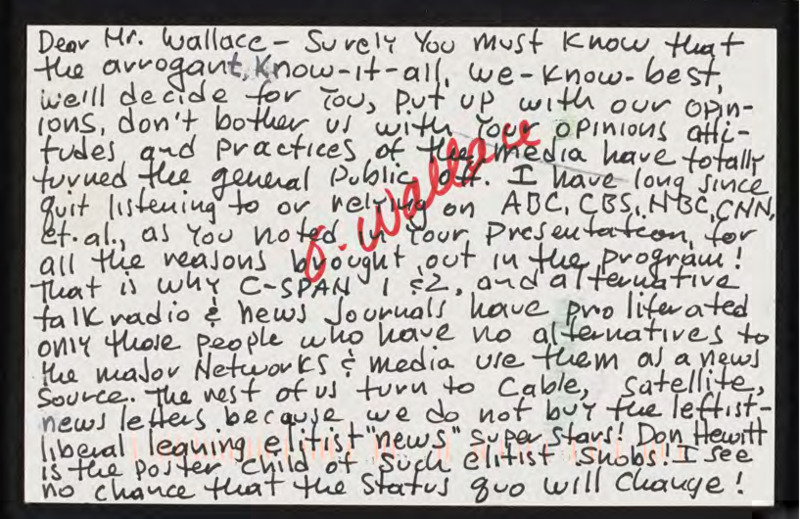 Dear Mr. Wallace - Surely You must Know that
the arrogant, Know-it-all, we-know-best,
we'll decide for You, put up with our opin-
ions, don't bother us with Your opinions atti-
tudes and practices of the media have totally
turned the general public off. I have long since
quit listening to or relying on ABC, CBS, NBC, CNN,
et. al., as You noted in Your presentation, for
all the reasons brought out in the program!
That is why C-SPAN 1 & 2, and alternative
talk radio & news Journals have proliferated
only those people who have no alternatives to
the major Networks & media use them as a news
Source. The rest of us turn to Cable, Satellite,
news letters because we do not buy the leftist-
liberal leaning elitist "news" super stars! Don Hewitt
is the poster child of such elitist Snobs! I see
no chance that the status quo will change!
Wallace